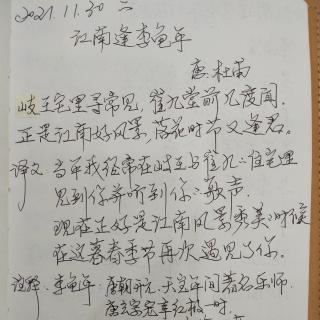 2021.11.30 二
江南逢李龟年
唐:杜甫
岐王宅里寻常见,崔九堂前几度闻.
正是江南好风景,落花时节又逢君.
译文:当年我经常在岐王与崔九的住宅里
见到你并听到你的歌声.
现在正好是江南风景秀美的时候
在这暮春季节再次遇见了你.
注释:李龟年:唐朝开元、天宝年间著名乐师.
唐玄宗宠幸红极一时.